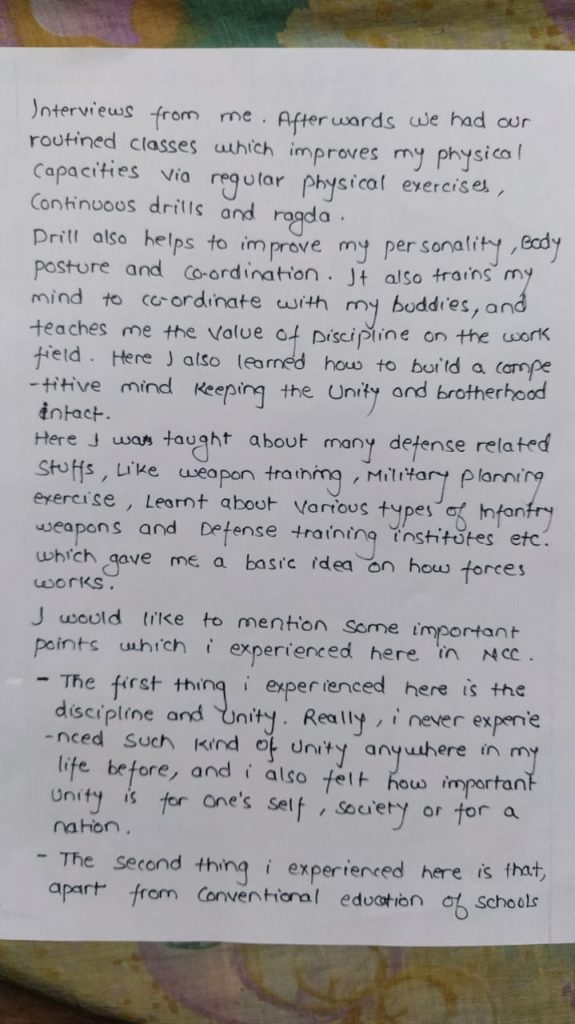 Interviews from me. Afterwards we had our
routined classes which improves my physical
capacities via regular physical exercises,
Continuous drills and ragda.
Drill also helps to improve my personality, Body
posture and co-ordination. It also trains my
mind to co-ordinate with my buddies, and
teaches me the value of Discipline on the work
field. Here I also learned how to build a compe
-titive mind keeping the Unity and brotherhood
intact.
Here I was taught about many defense related
Stuffs, Like weapon training, Military planning
exercise, Learnt about various types of Infantry
weapons and Defense training institutes etc.
which gave me a basic idea on how forces
works.
I would like to mention some important
points which i experienced here in NCC.
- The first thing i experienced here is the
discipline and Unity. Really, i never experie
-nced such kind of unity anywhere in my
life before, and i also felt how important
unity is for one's self, society or for a
nation.
- The second thing i experienced here is that,
apart from conventional education of schools